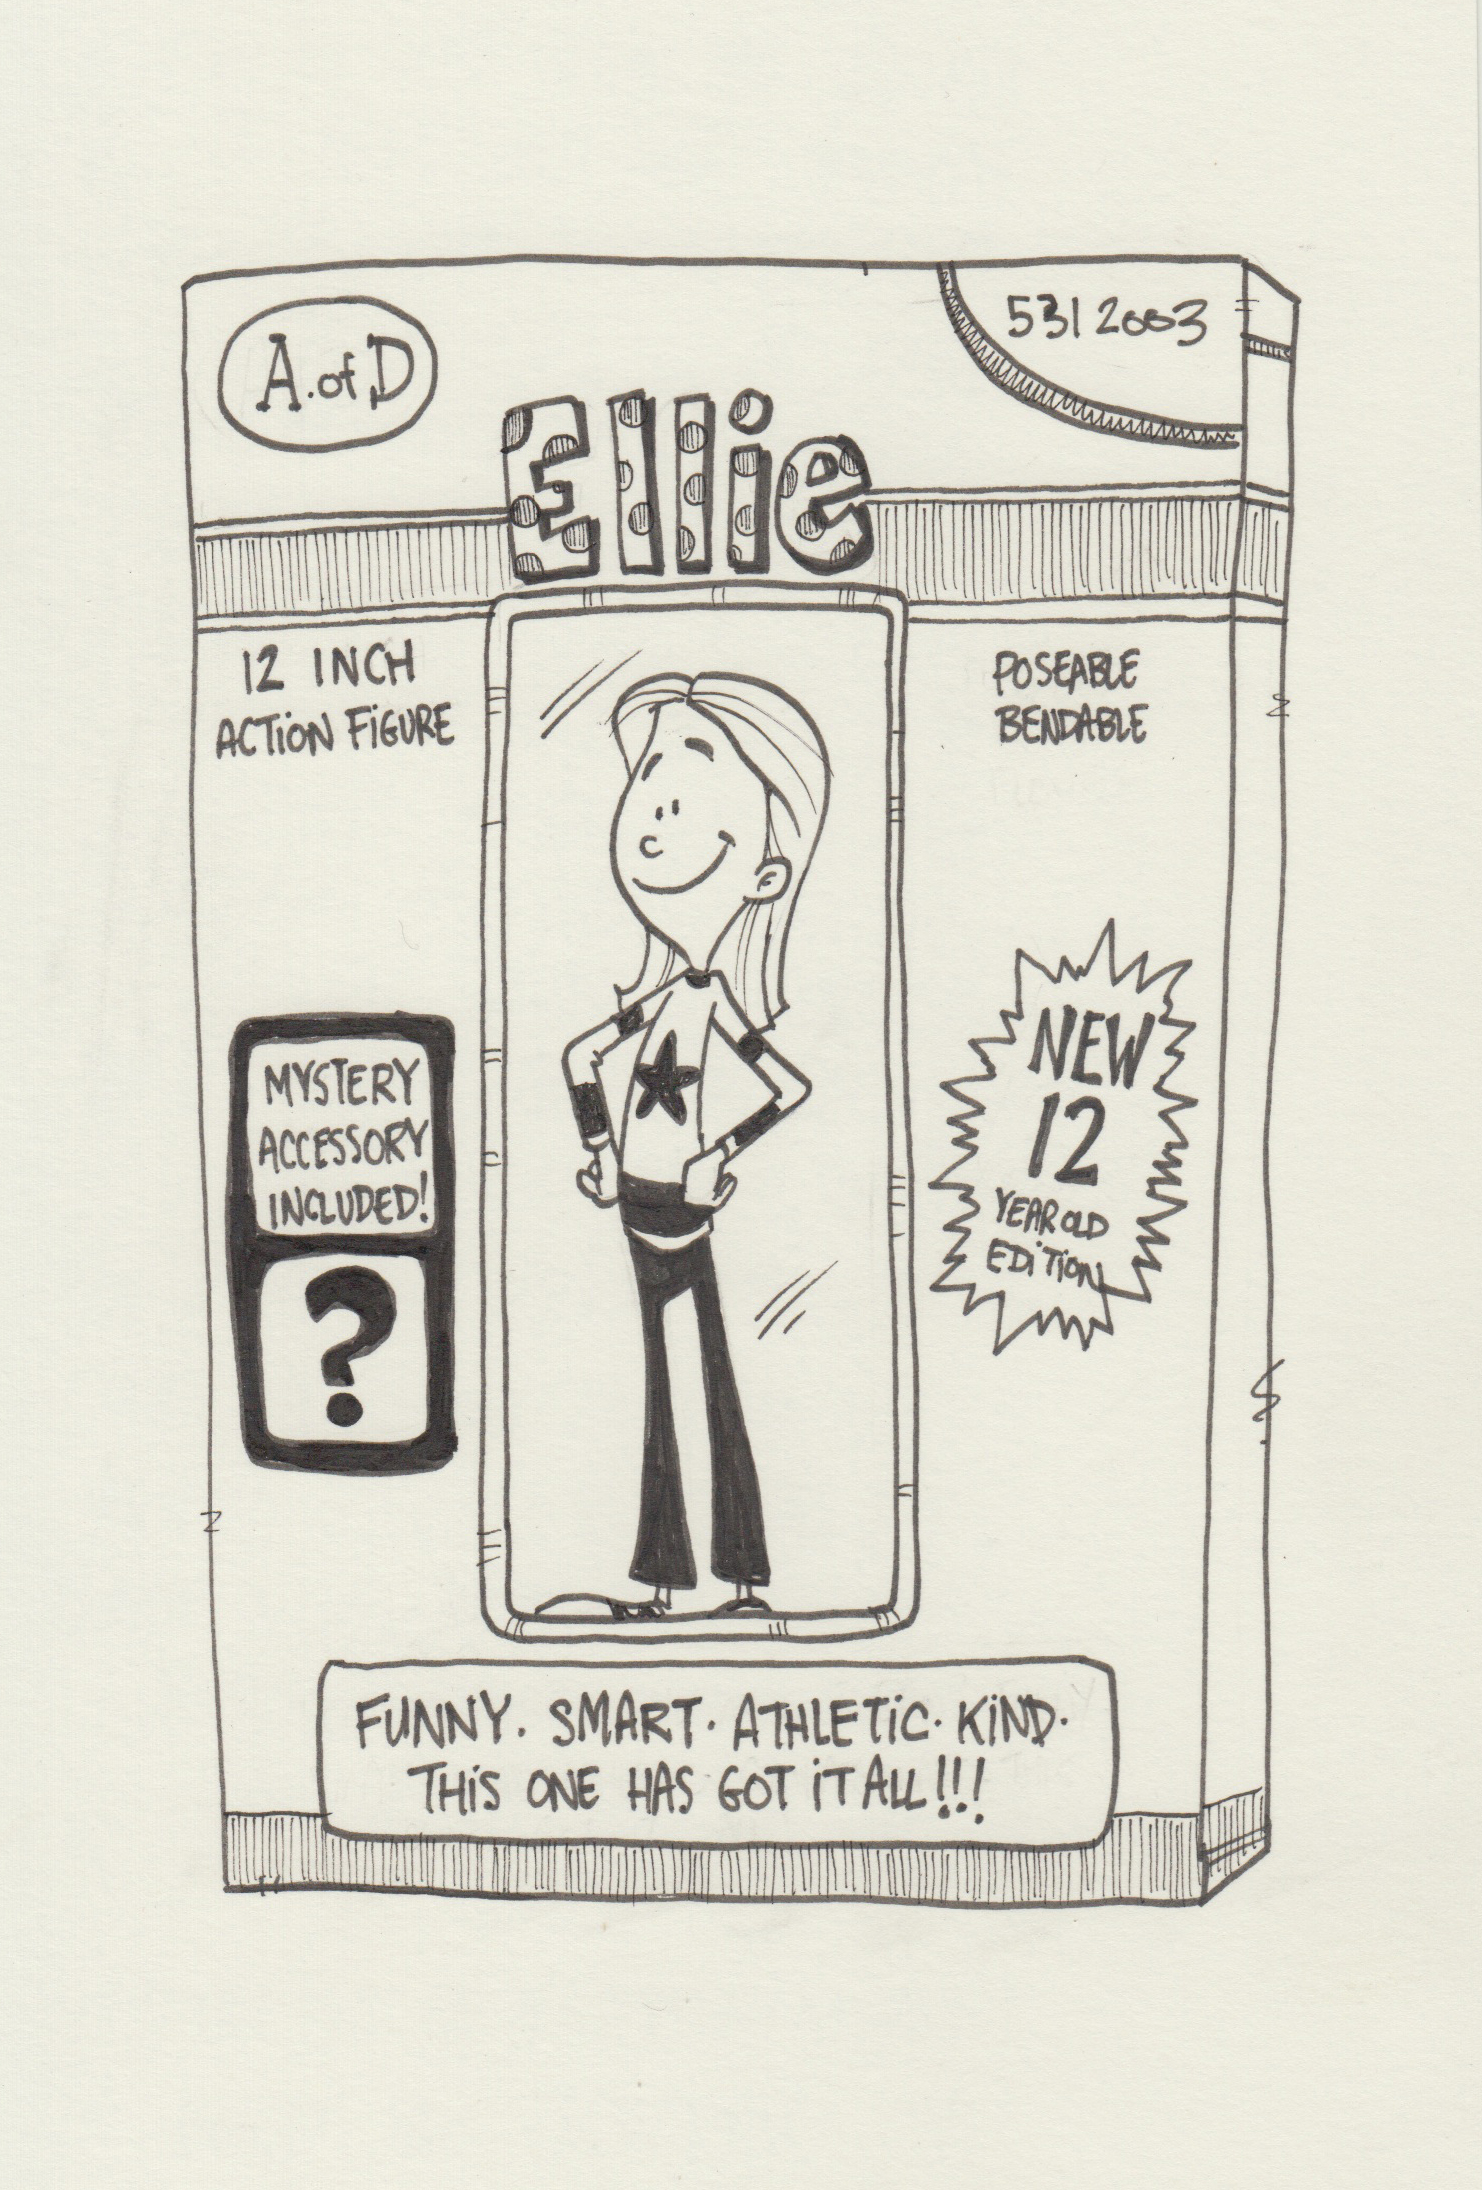 A.of.D
5312003
Ellie
12 INCH
ACTiON FiGURE
POSEABLE
BENDABLE
MYSTERY
ACCESSORY
INCLUDED!
?
NEW
12
YEAR OLD
EDiTiON
FUNNY. SMART. ATHLETiC. KiND.
THiS ONE HAS GOT iT ALL!!!